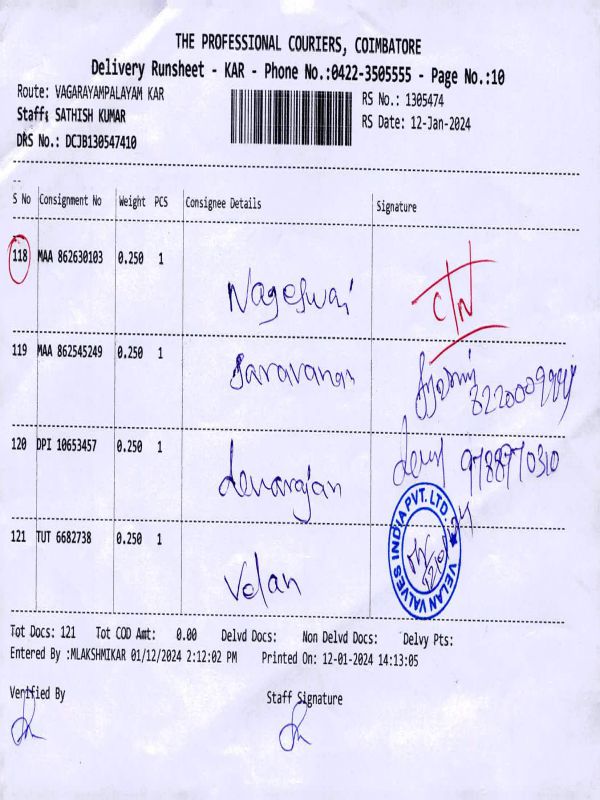 THE PROFESSIONAL COURIERS, COIMBATORE
Delivery Runsheet - KAR - Phone No.:0422-3505555 - Page No.:10
Route: VAGARAYAMPALAYAM KAR
RS No.: 1305474
Staff: SATHISH KUMAR
RS Date: 12-Jan-2024
DRS No.: DCJB130547410
S No Consignment No Weight PCS Consignee Details Signature
118 MAA 862630103 0.250 1
Nageswari C/N
119 MAA 862545249 0.250 1
Saravanan
120 DPI 10653457 0.250 1
devarajan 9788770310
121 TUT 6682738 0.250 1
Velan
VELAN VALVES INDIA PVT. LTD.
Tot Docs: 121 Tot COD Amt: 0.00 Delvd Docs: Non Delvd Docs: Delvy Pts:
Entered By :MLAKSHMIKAR 01/12/2024 2:12:02 PM Printed On: 12-01-2024 14:13:05
Verified By Staff Signature